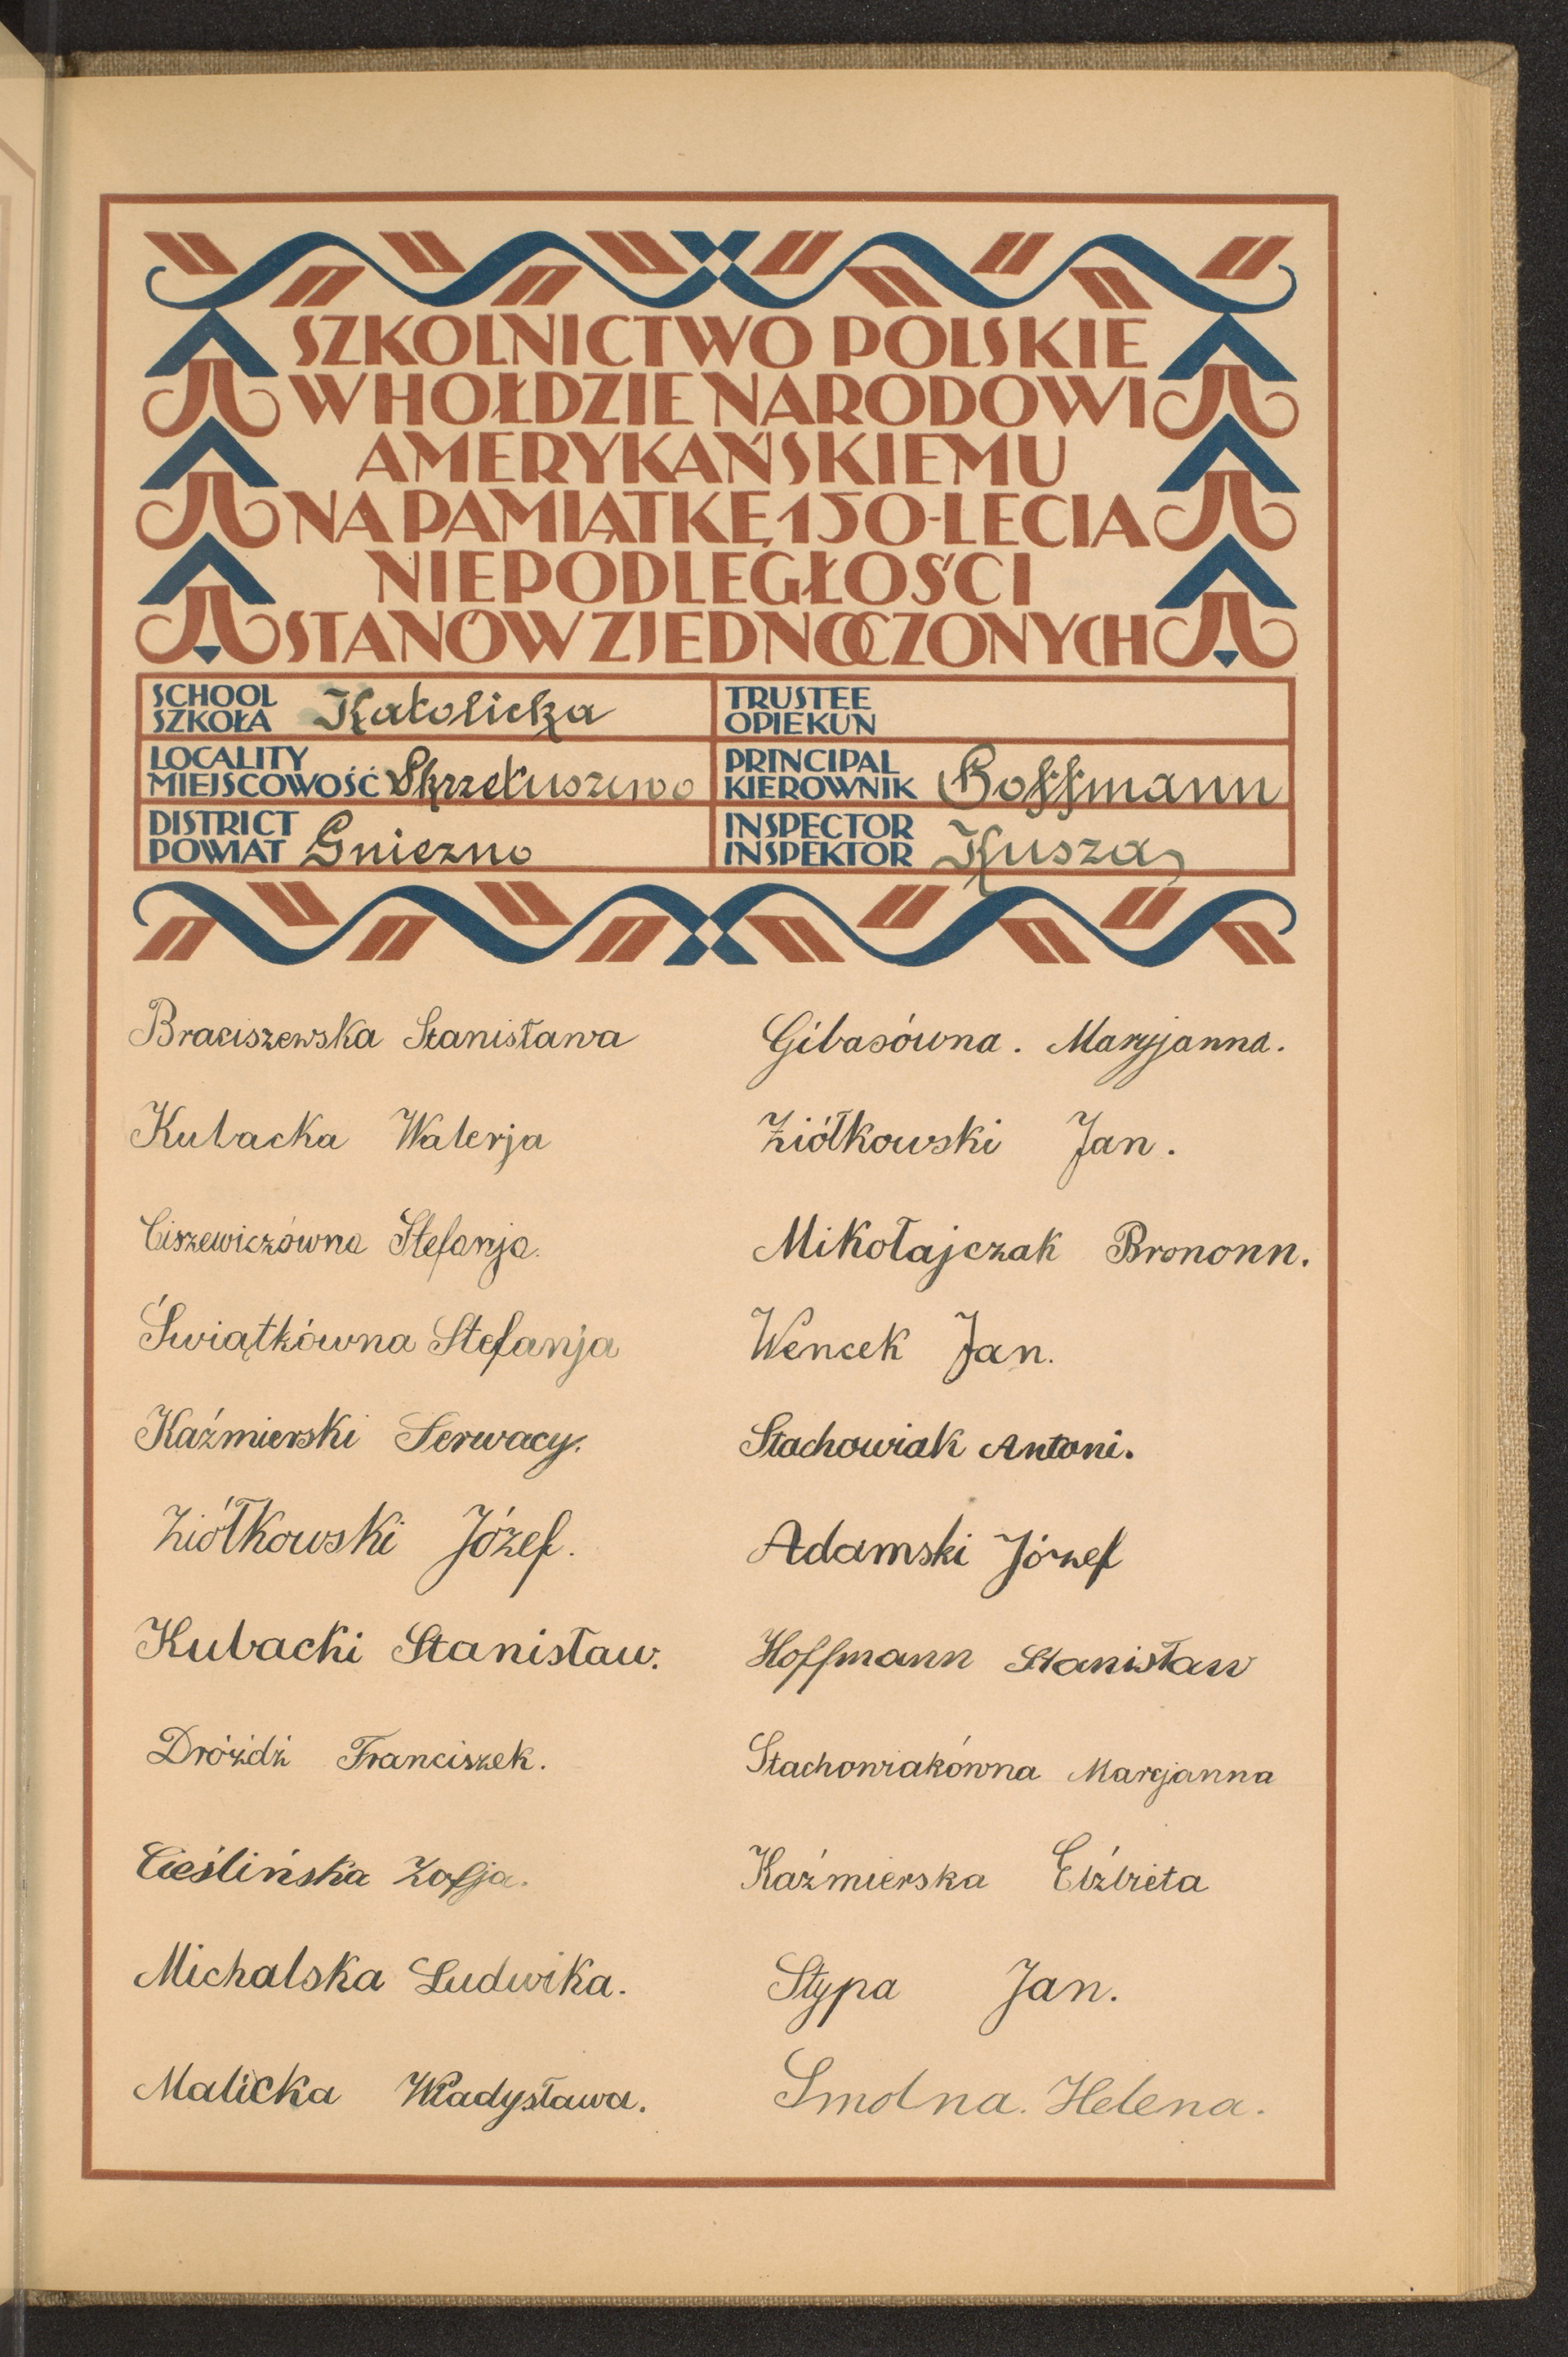 SZKOLNICTWO POLSKIE
W HOŁDZIE NARODOWI
AMERYKAŃSKIEMU
NA PAMIĄTKĘ 150-LECIA
NIEPODLEGŁOŚCI
STANÓW ZJEDNOCZONYCH
SCHOOL
SZKOŁA Katolicka
TRUSTEE
OPIEKUN
LOCALITY
MIEJSCOWOŚĆ Skrzetuszewo
PRINCIPAL
KIEROWNIK Hoffmann
DISTRICT
POWIAT Gniezno
INSPECTOR
INSPEKTOR Kusza
Braciszewska Stanisława
Kubacka Walerja
Ciszewiczówna Stefanja.
Świątkówna Stefanja
Kaźmierski Serwacy.
Ziółkowski Józef.
Kubacki Stanisław.
Dróżdż Franciszek.
Cieślińska Zofja.
Michalska Ludwika.
Malicka Władysława.
Gibasówna. Maryjanna.
Ziółkowski Jan.
Mikołajczak Brononn.
Wencek Jan.
Stachowiak Antoni.
Adamski Józef
Hoffmann Stanisław
Stachowiakówna Marjanna
Kaźmierska Elżbieta
Stypa Jan.
Smolna. Helena.